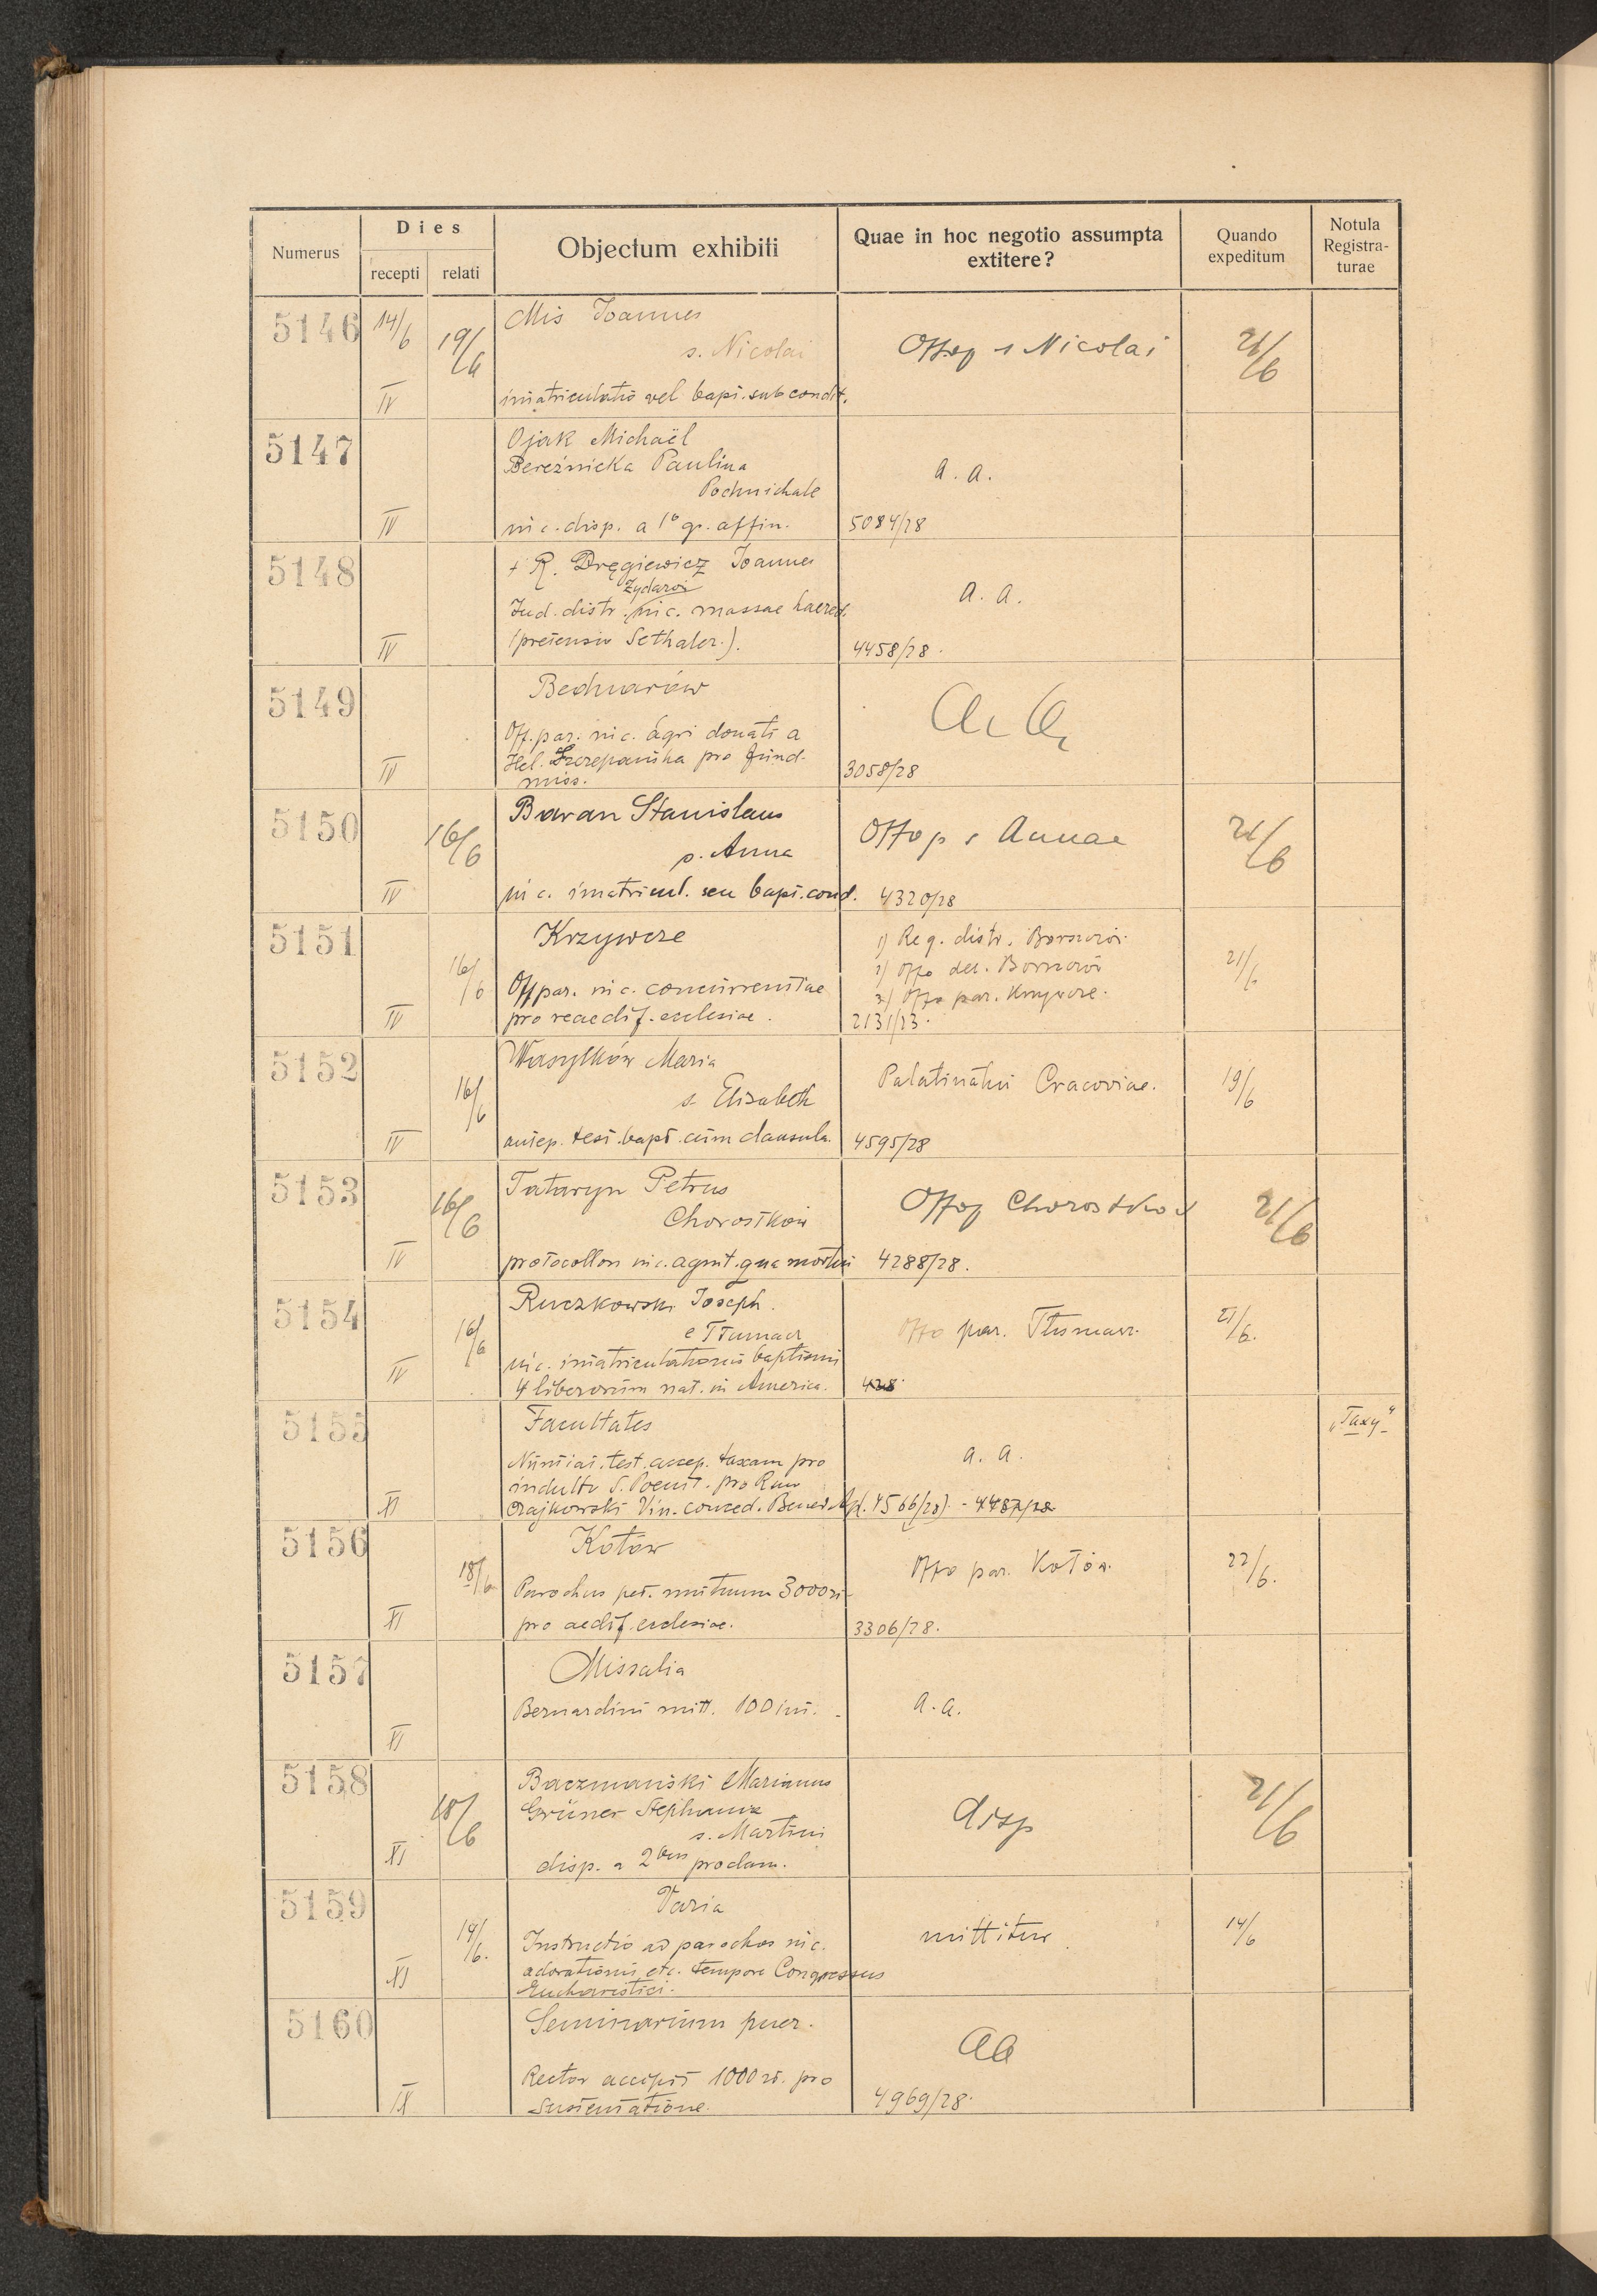 Numerus
Dies
recepti
relati
Objectum exhibiti
Quae in hoc negotio assumpta
extitere?
Quando
expeditum
Notula
Registra-
turae
5146
14/6
19/6
IV
Mis Joannes
s. Nicolai
imatriculatio vel bapt. sub condit.
Offop s Nicolai
21/6
5147
IV
Ojak Michaël
Bereźnicka Paulina
Podmichale
nic. disp. a 1º gr. affin.
a. a.
5084/28
5148
IV
+ R. Dręgiewicz Joannes
Żydarów
Jud. distr. nic. massae haered.
(pretensio Sethaler.).
a. a.
4458/28.
5149
IV
Bednarów
Off. par. nic. agri donati a
Hel. Szczepańska pro fund.
miss.
a. a.
3058/28
5150
16/6
IV
Baran Stanislaus
s. Anna
nic. imatricul. seu bapt. cond.
Offo p s Annae
4320/28
21/6
5151
16/6
IV
Krzywcze
Off par. nic. concurrentiae
pro reaedif. ecclesiae.
1) Reg. distr. Borszczów
2) Offo dec. Borszczów
3) Offo par. Krzywcze.
2131/23.
21/6
5152
16/6
IV
Wasylków Maria
s. Elisabeth
autep. test. bapt. cum clausula.
Palatinatui Cracoviae.
4595/28
19/6
5153
16/6
IV
Tataryn Petrus
Chorostków
protocollon nic. agnit. qua mortui
Offop Chorostków
4288/28.
21/6
5154
16/6
IV
Ruczkowski Joseph.
e Tłumacz
nic. imatriculationis baptismi
4 liberorum nat. in America.
Offo par. Tłumacz.
428
21/6.
5155
XI
Facultates
Nuntiat. test. accep. taxam pro
indulto S. Poenit. pro Rmo
Czajkowski Vin. conced. Bened. Ap. 4566/28) - 4487/28
a. a.
„Taxy"
5156
18/6
XI
Kotów
Parochus pet. mutuum 3000 zł
pro aedif. ecclesiae.
Offo par. Kotów.
3306/28.
22/6.
5157
XI
Missalia
Bernardini mitt. 100 int.
a. a.
5158
18/6
XI
Baczmański Marianus
Grüner Stephania
s. Martini
disp. a 2bus proclam.
disp
21/6
5159
14/6.
XI
Varia
Instructio ad parochos nic.
adorationis etc. tempore Congressus
Eucharistici.
mittitur
14/6
5160
IX
Seminarium puer.
Rector accipit 1000 zł. pro
sustentatione.
aa
4969/28.